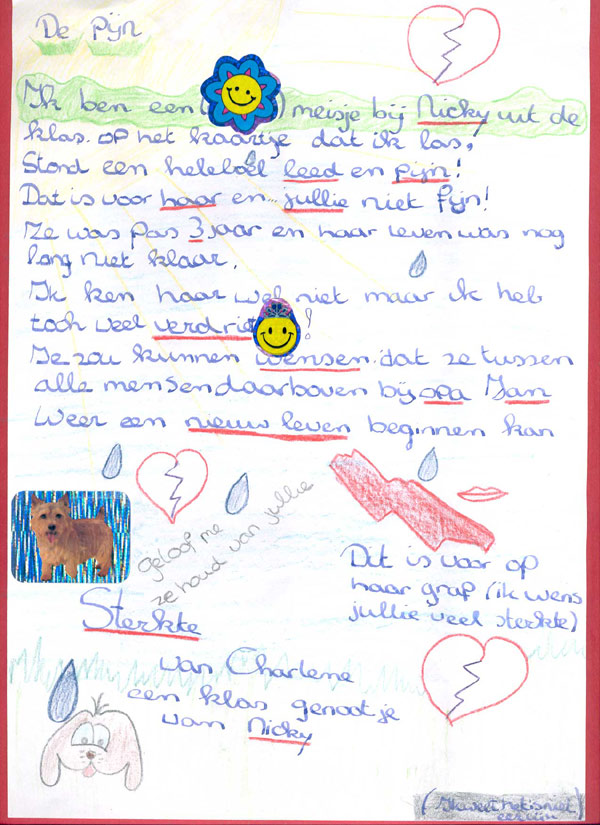 De Pijn
Ik ben een ( ) meisje bij Nicky uit de
klas. op het kaartje dat ik las,
Stond een heleboel leed en pijn!
Dat is voor haar en... jullie niet fijn!
Ze was pas 3 jaar en haar leven was nog
lang niet klaar.
Ik ken haar wel niet maar ik heb
toch veel verdriet!
Je zou kunnen wensen. dat ze tussen
alle mensen daarboven bij opa Jan
Weer een nieuw leven beginnen kan
geloof me
ze houd van jullie
Dit is voor op
haar graf (ik wens
jullie veel sterkte)
Sterkte
van Charlene
een klas genootje
van Nicky
(Ik weet het is niet